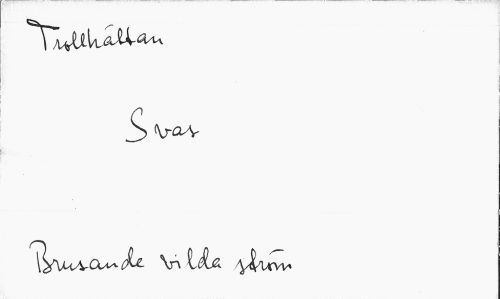 Trollhättan
Svar
Brusande vilda ström